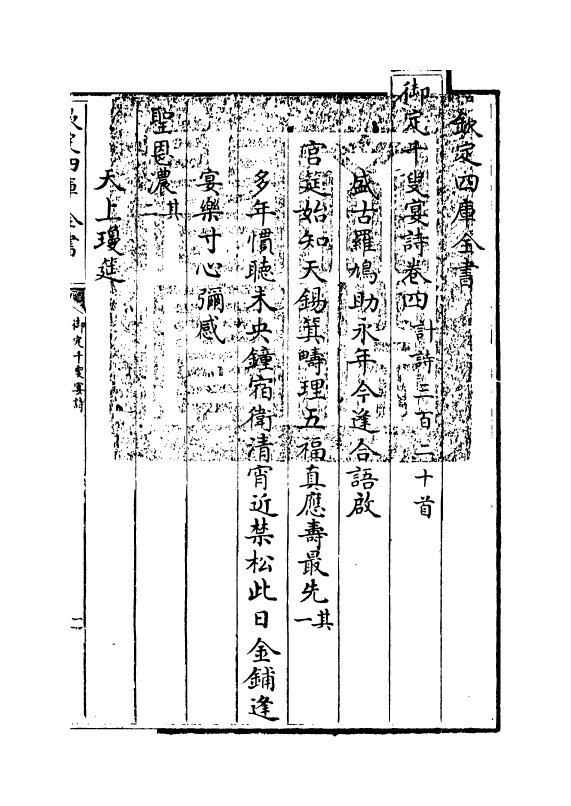 欽定四庫全書
御定千叟宴詩卷四 計詩三百二十首
盛古羅鳩助永年今逢合語啟
官筵始知天錫箕疇理五福真應壽最先其一
多年慣聽未央鐘宿衛清宵近禁松此日金鋪逢
宴樂寸心彌感
聖恩濃其二
天上瓊筵
欽定四庫全書
御定千叟宴詩